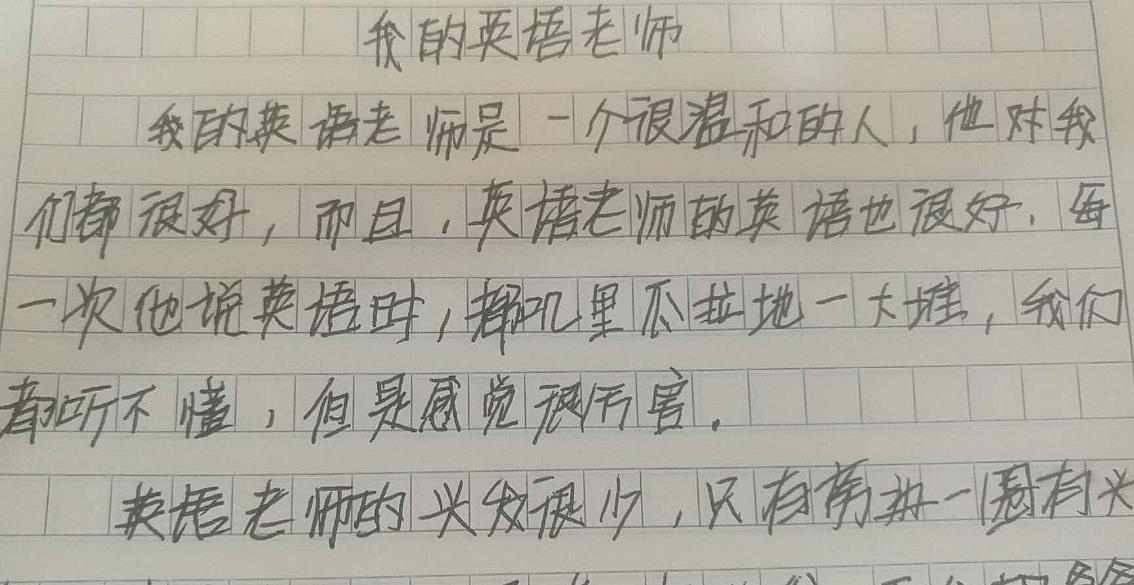 我的英语老师
我的英语老师是一个很温和的人，他对我
们都很好，而且，英语老师的英语也很好．每
一次他说英语时，都叽里瓜拉地一大堆，我们
都听不懂，但是感觉很厉害．
英语老师的头发很少，只有旁边一圈有头